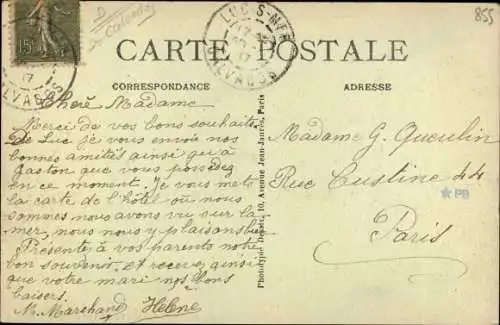 D
Calvados
855
15
LUC-S-MER
17
CALVADOS
CARTE POSTALE
CORRESPONDANCE
ADRESSE
Chère Madame
Merci de vos bons souhaits
de Luc je vous envoie nos
bonnes amitiés ainsi qu'à
Gaston que vous possédez
en ce moment. Je vous mets
la carte de l'hôtel où nous
sommes nous avons vu sur la
mer, nous nous y plaisons bien
Présentez à vos parents notre
bon souvenir, et recevez ainsi
que votre mari nos bons
baisers.
Mr. Marchand Helene
Madame G. Queulin
Rue Custine 44
Paris
Phototypie Désaix, 10, Avenue Jean-Jaurès, Paris
PB